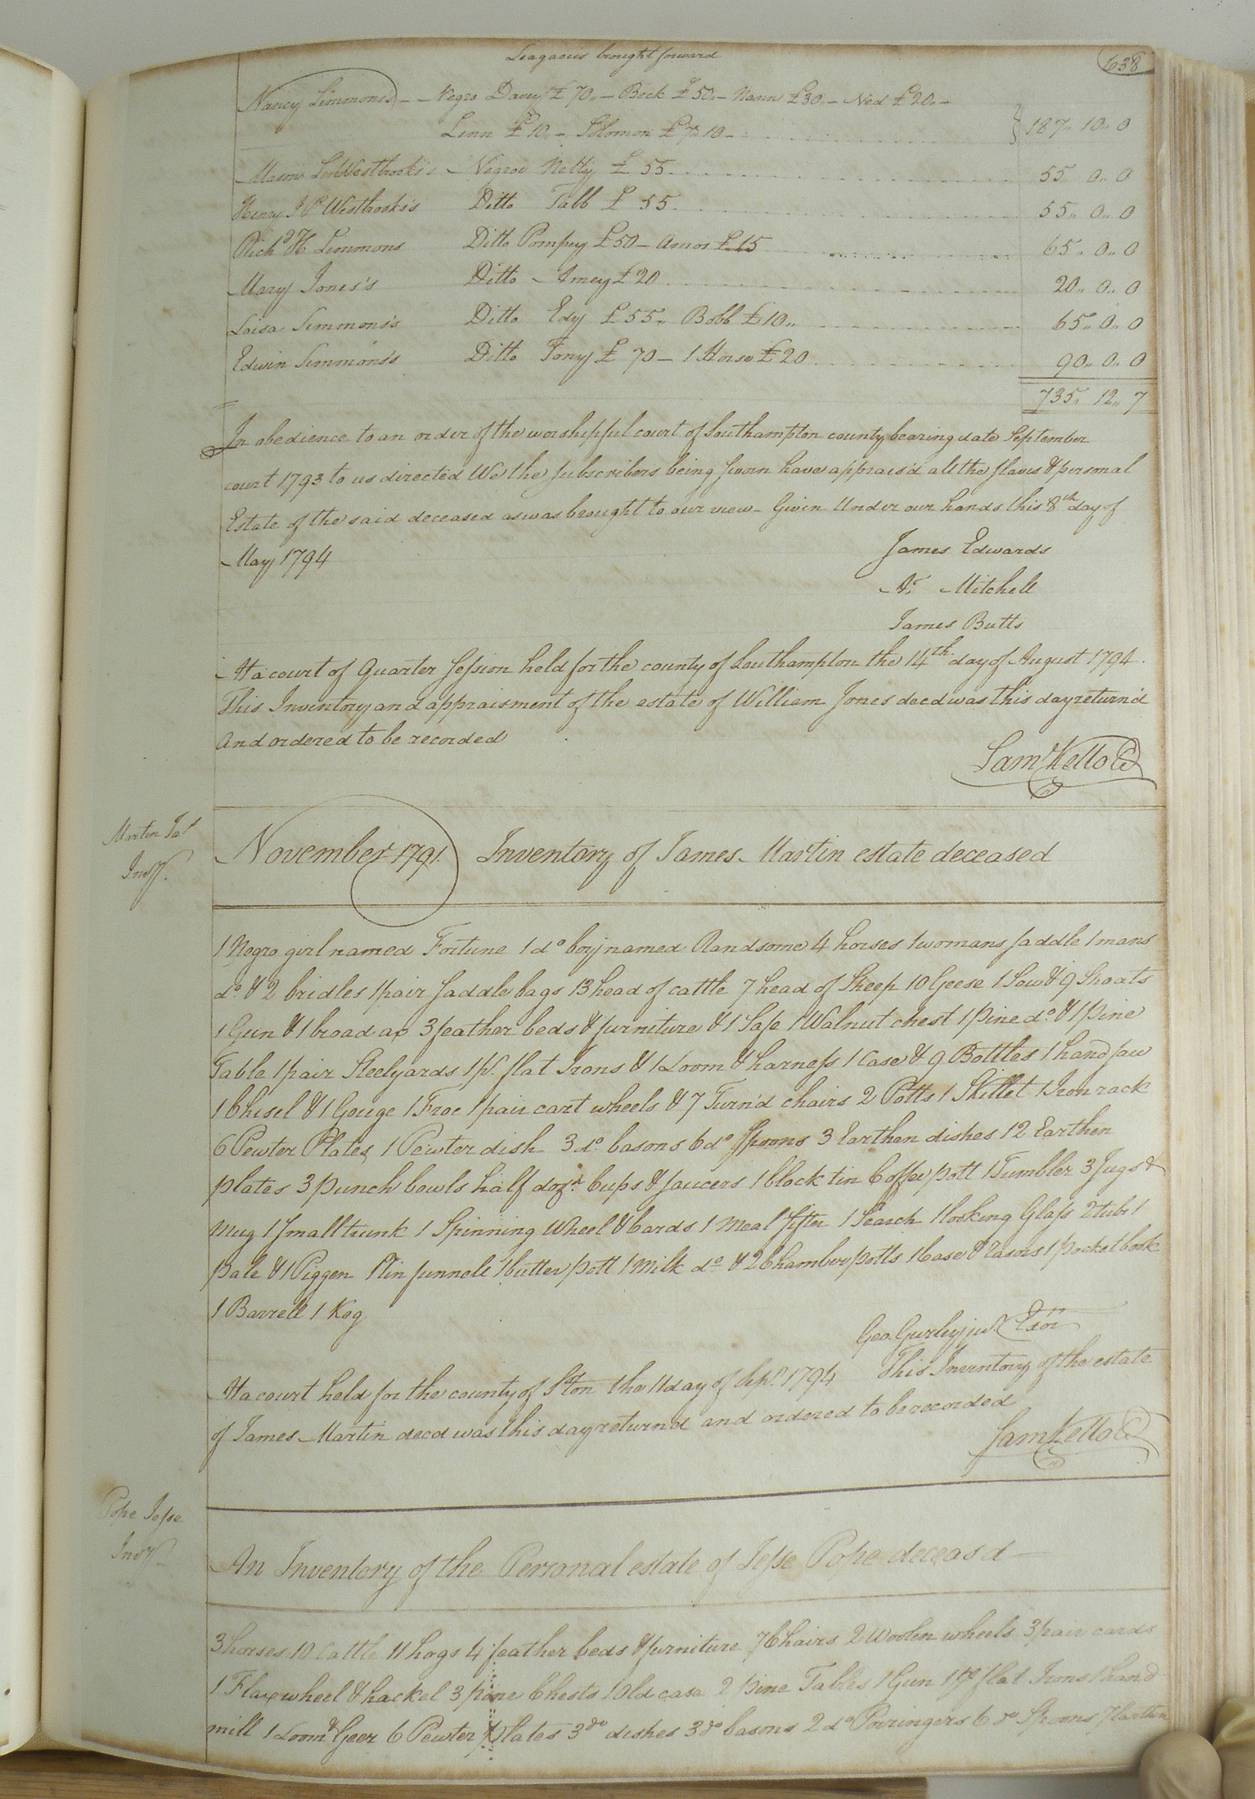 Leagacies brought forward
638
Nancy Simmons's - Negro Davy £70.. - Beck £50.. - Nann £30.. - Ned £20.. -
Linn £10.. - Solomon £7.10 - } 187.. 10.. 0
Mason Westbrook's - Negroe Netty £55. 55 0.. 0
Henry Westbrooks's Ditto Tabb £55. 55.. 0.. 0
Richd. H. Simmons Ditto Pompey £50 - Amos £15 65.. 0.. 0
Mary Jones's Ditto Amey £20 20.. 0.. 0
Loisa Simmons's Ditto Edy £55.. Bobb £10.. 65.. 0.. 0
Edwin Simmons's Ditto Tony £70 - 1 Horse £20 90.. 0.. 0
735.. 12.. 7
In obedience to an order of the worshipful court of Southampton county bearing date September
court 1793 to us directed We the subscribers being sworn have apprais'd all the slaves & personal
Estate of the said deceased as was brought to our view - Given Under our hands this 8th day of
May 1794
James Edwards
Mitchell
James Butts
At a court of Quarter Session held for the county of Southampton the 14th day of August 1794.
This Inventory and appraisment of the estate of William Jones decd was this day return'd
And ordered to be recorded
Saml Kello C
Martin Jas
Invy.
November 1791. Inventory of James Martin estate deceased
1 Negro girl named Fortune 1 do boy named Randsome 4 horses 1 womans saddle 1 mans
do & 2 bridles 1 pair saddle bags 13 head of cattle 7 head of Sheep 10 Geese 1 Sow & 9 Shoats
1 Gun & 1 broad ax 3 feather beds & furniture & 1 Safe 1 Walnut chest 1 pine do & 1 pine
Table 1 pair Steelyards 1 pr. flat Irons & 1 Loom & harness 1 Case & 9 Bottles 1 hand saw
1 Chisel & 1 Gouge 1 Froe 1 pair cart wheels & 7 Turn'd chairs 2 Potts 1 Skillet 1 Iron rack
6 Pewter Plates 1 Pewter dish 3 do basons 6 do Spoons 3 Earthen dishes 12 Earthen
plates 3 punch bowls half dozn Cups & saucers 1 block tin Coffee pott 1 Tumbler 3 Jugs &
Mug 1 Small trunk 1 Spinning Wheel & Cards 1 Meal sifter 1 Search 1 looking Glass 2 tubs 1
Pale & 1 Piggen 1 tin funnell 1 butter pott 1 Milk do & 2 Chamber potts 1 Case & Rasors 1 pocket book
1 Barrell 1 Kog
Geo. Gurley junr Exor
At a court held for the county of Ston the 11 day of Sepr. 1794 This Inventory of the estate
of James Martin decd was this day returnd and ordered to be recorded
Saml Kello C
Pope Jesse
Invy.
An Inventory of the Personal estate of Jesse Pope deceas'd
3 horses 10 Cattle 11 hogs 4 feather beds & furniture 7 Chairs 2 Woolen wheels 3 pair cards
1 Flax wheel & hackel 3 pine Chests 1 Old case 2 pine Tables 1 Gun 1 pr flat Irons 1 hand
mill 1 Loom & Geer 6 Pewter plates 3 do dishes 3 do basons 2 do Porringers 6 do Spoons 7 Earthen